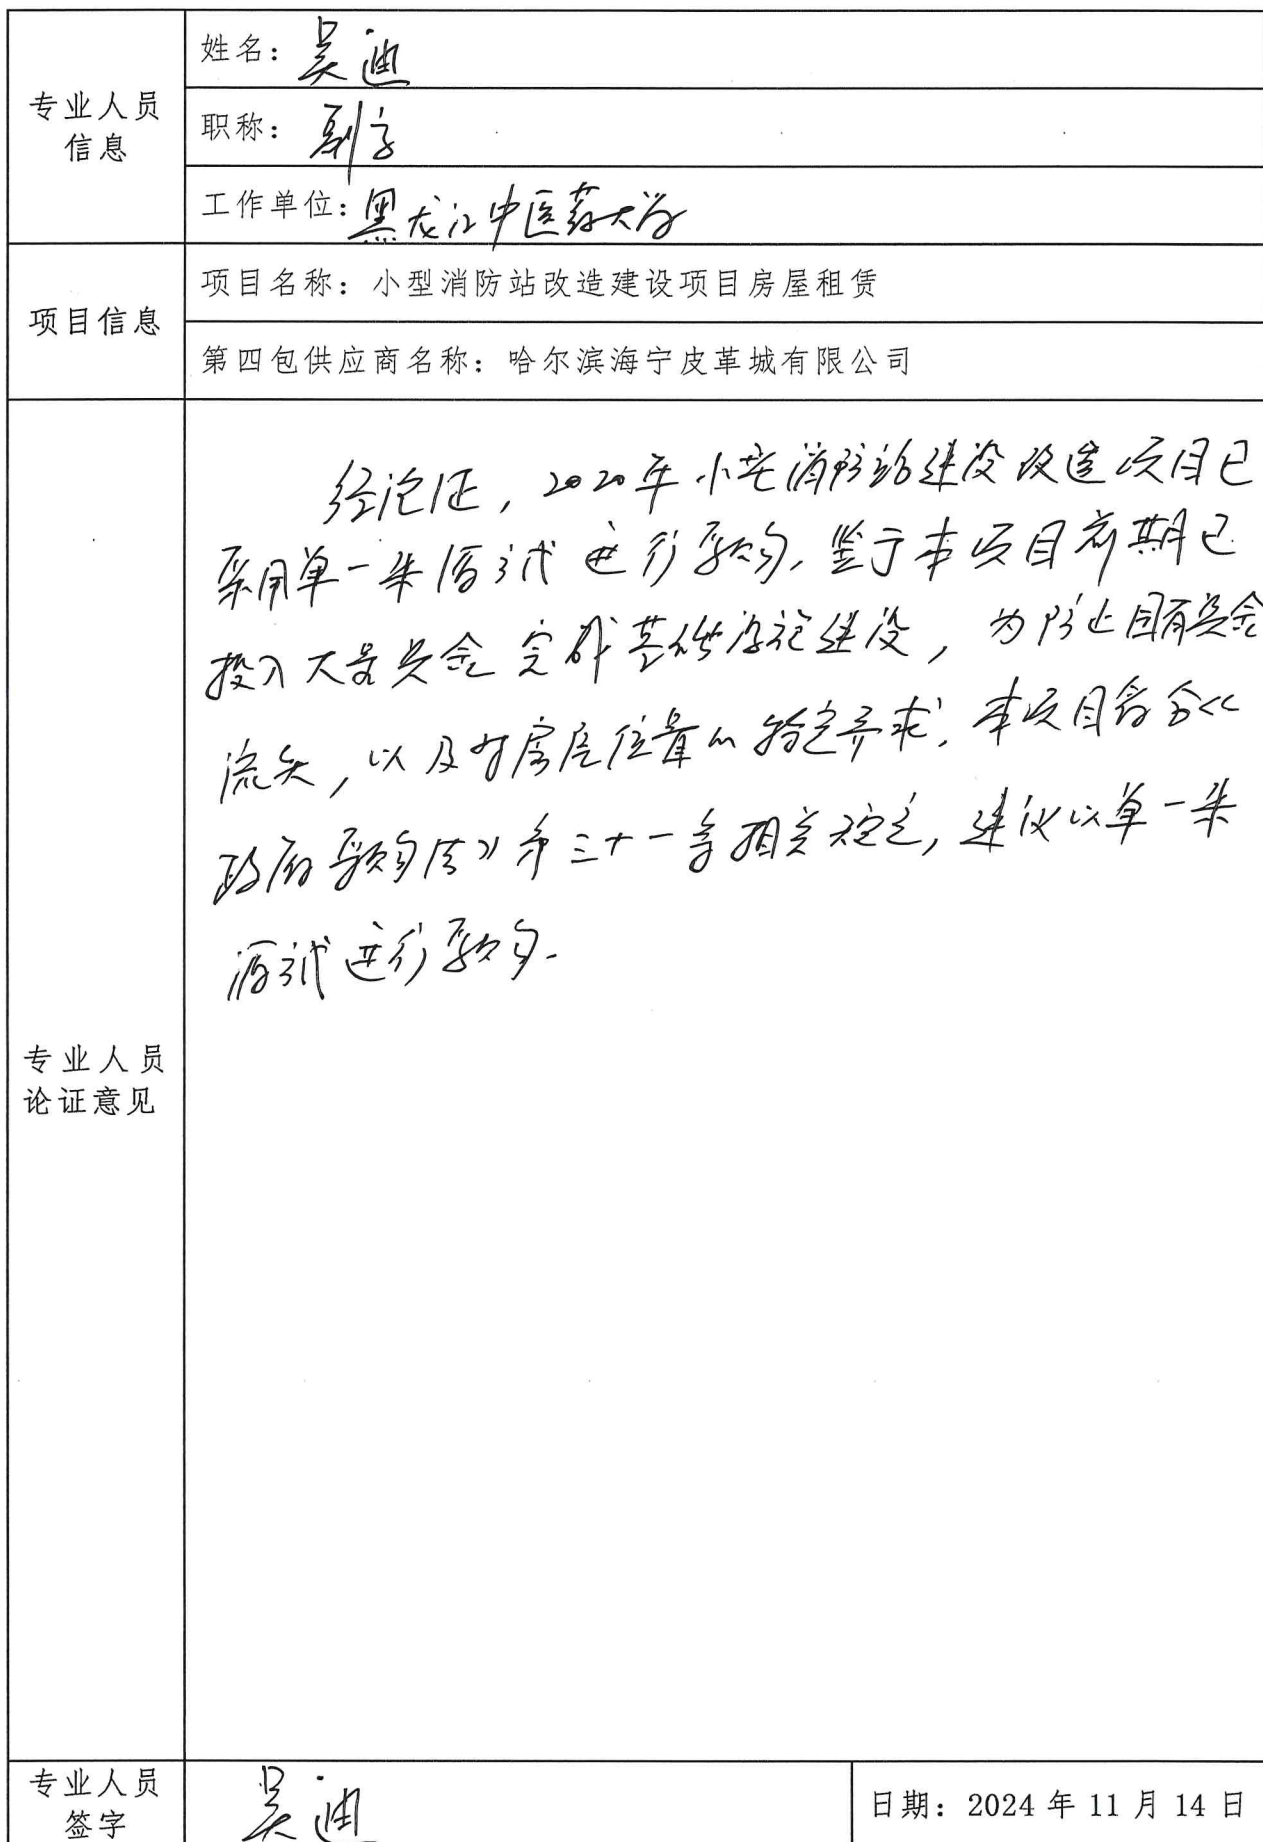 专业人员
信息
姓名：吴迪
职称：副高
工作单位：黑龙江中医药大学
项目信息
项目名称：小型消防站改造建设项目房屋租赁
第四包供应商名称：哈尔滨海宁皮革城有限公司
专业人员
论证意见
经论证，2020年小型消防站建设改造项目已
采用单一来源方式进行采购，鉴于本项目前期已
投入大量资金完成基础设施建设，为防止国有资金
流失，以及对房屋位置的特定需求，本项目符合《
政府采购法》第三十一条相关规定，建议以单一来
源方式进行采购.
专业人员
签字
吴迪
日期：2024年11月14日